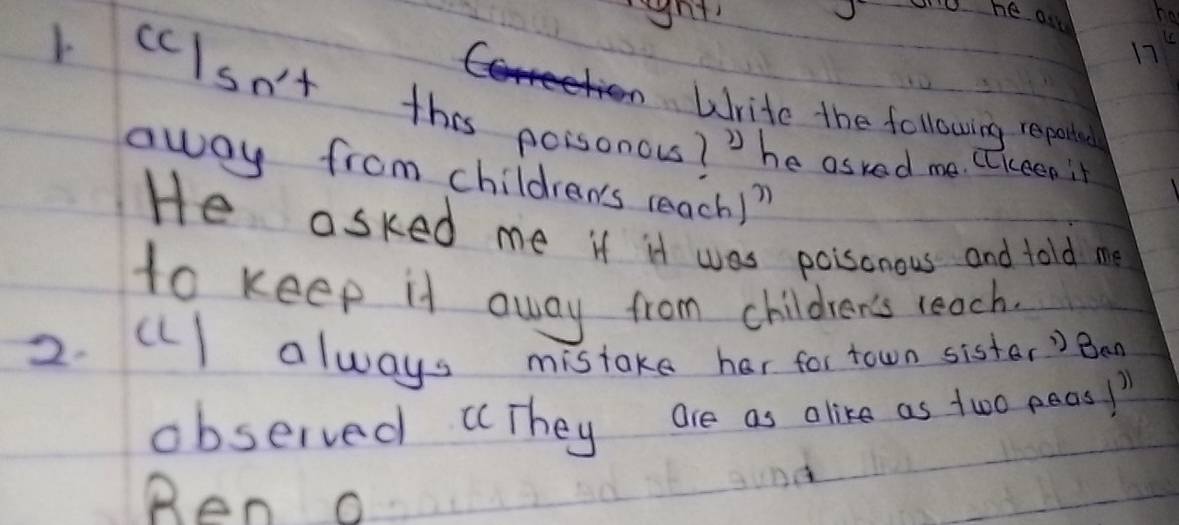 he
17
Correction Write the following reported
1. "Isn't this poisonous?" he asked me. "Keep it
away from children's reach!"
He asked me if it was poisonous and told me
to keep it away from children's reach.
2. "I always mistake her for town sister" Ben
observed "They are as alike as two peas!"
Ben o